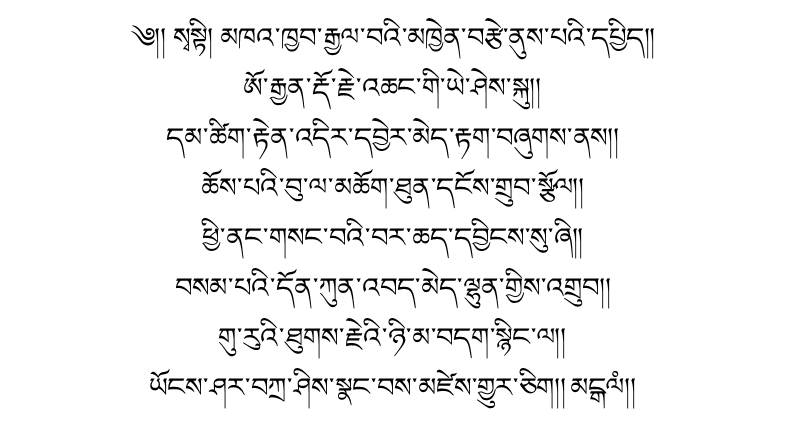 ༄།། སྭསྟི། མཁའ་ཁྱབ་རྒྱལ་བའི་མཁྱེན་བརྩེ་ནུས་པའི་དཔྱིད།།
ཨོ་རྒྱན་རྡོ་རྗེ་འཆང་གི་ཡེ་ཤེས་སྐུ།།
དམ་ཚིག་རྟེན་འདིར་དབྱེར་མེད་རྟག་བཞུགས་ནས།།
ཆོས་པའི་བུ་ལ་མཆོག་ཐུན་དངོས་གྲུབ་སྩོལ།།
ཕྱི་ནང་གསང་བའི་བར་ཆད་དབྱིངས་སུ་ཞི།།
བསམ་པའི་དོན་ཀུན་འབད་མེད་ལྷུན་གྱིས་འགྲུབ།།
གུ་རུའི་ཐུགས་རྗེའི་ཉི་མ་བདག་སྙིང་ལ།།
ཡོངས་ཤར་བཀྲ་ཤིས་སྣང་བས་མཛེས་གྱུར་ཅིག།། མངྒལཾ།།